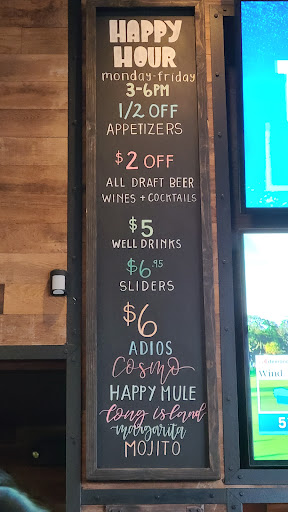 HAPPY
HOUR
monday-friday
3-6PM
1/2 OFF
APPETIZERS
$2 OFF
ALL DRAFT BEER
WINES + COCKTAILS
$5
WELL DRINKS
$6.95
SLIDERS
$6
ADIOS
Cosmo
HAPPY MULE
long island
margarita
MOJITO
Wind